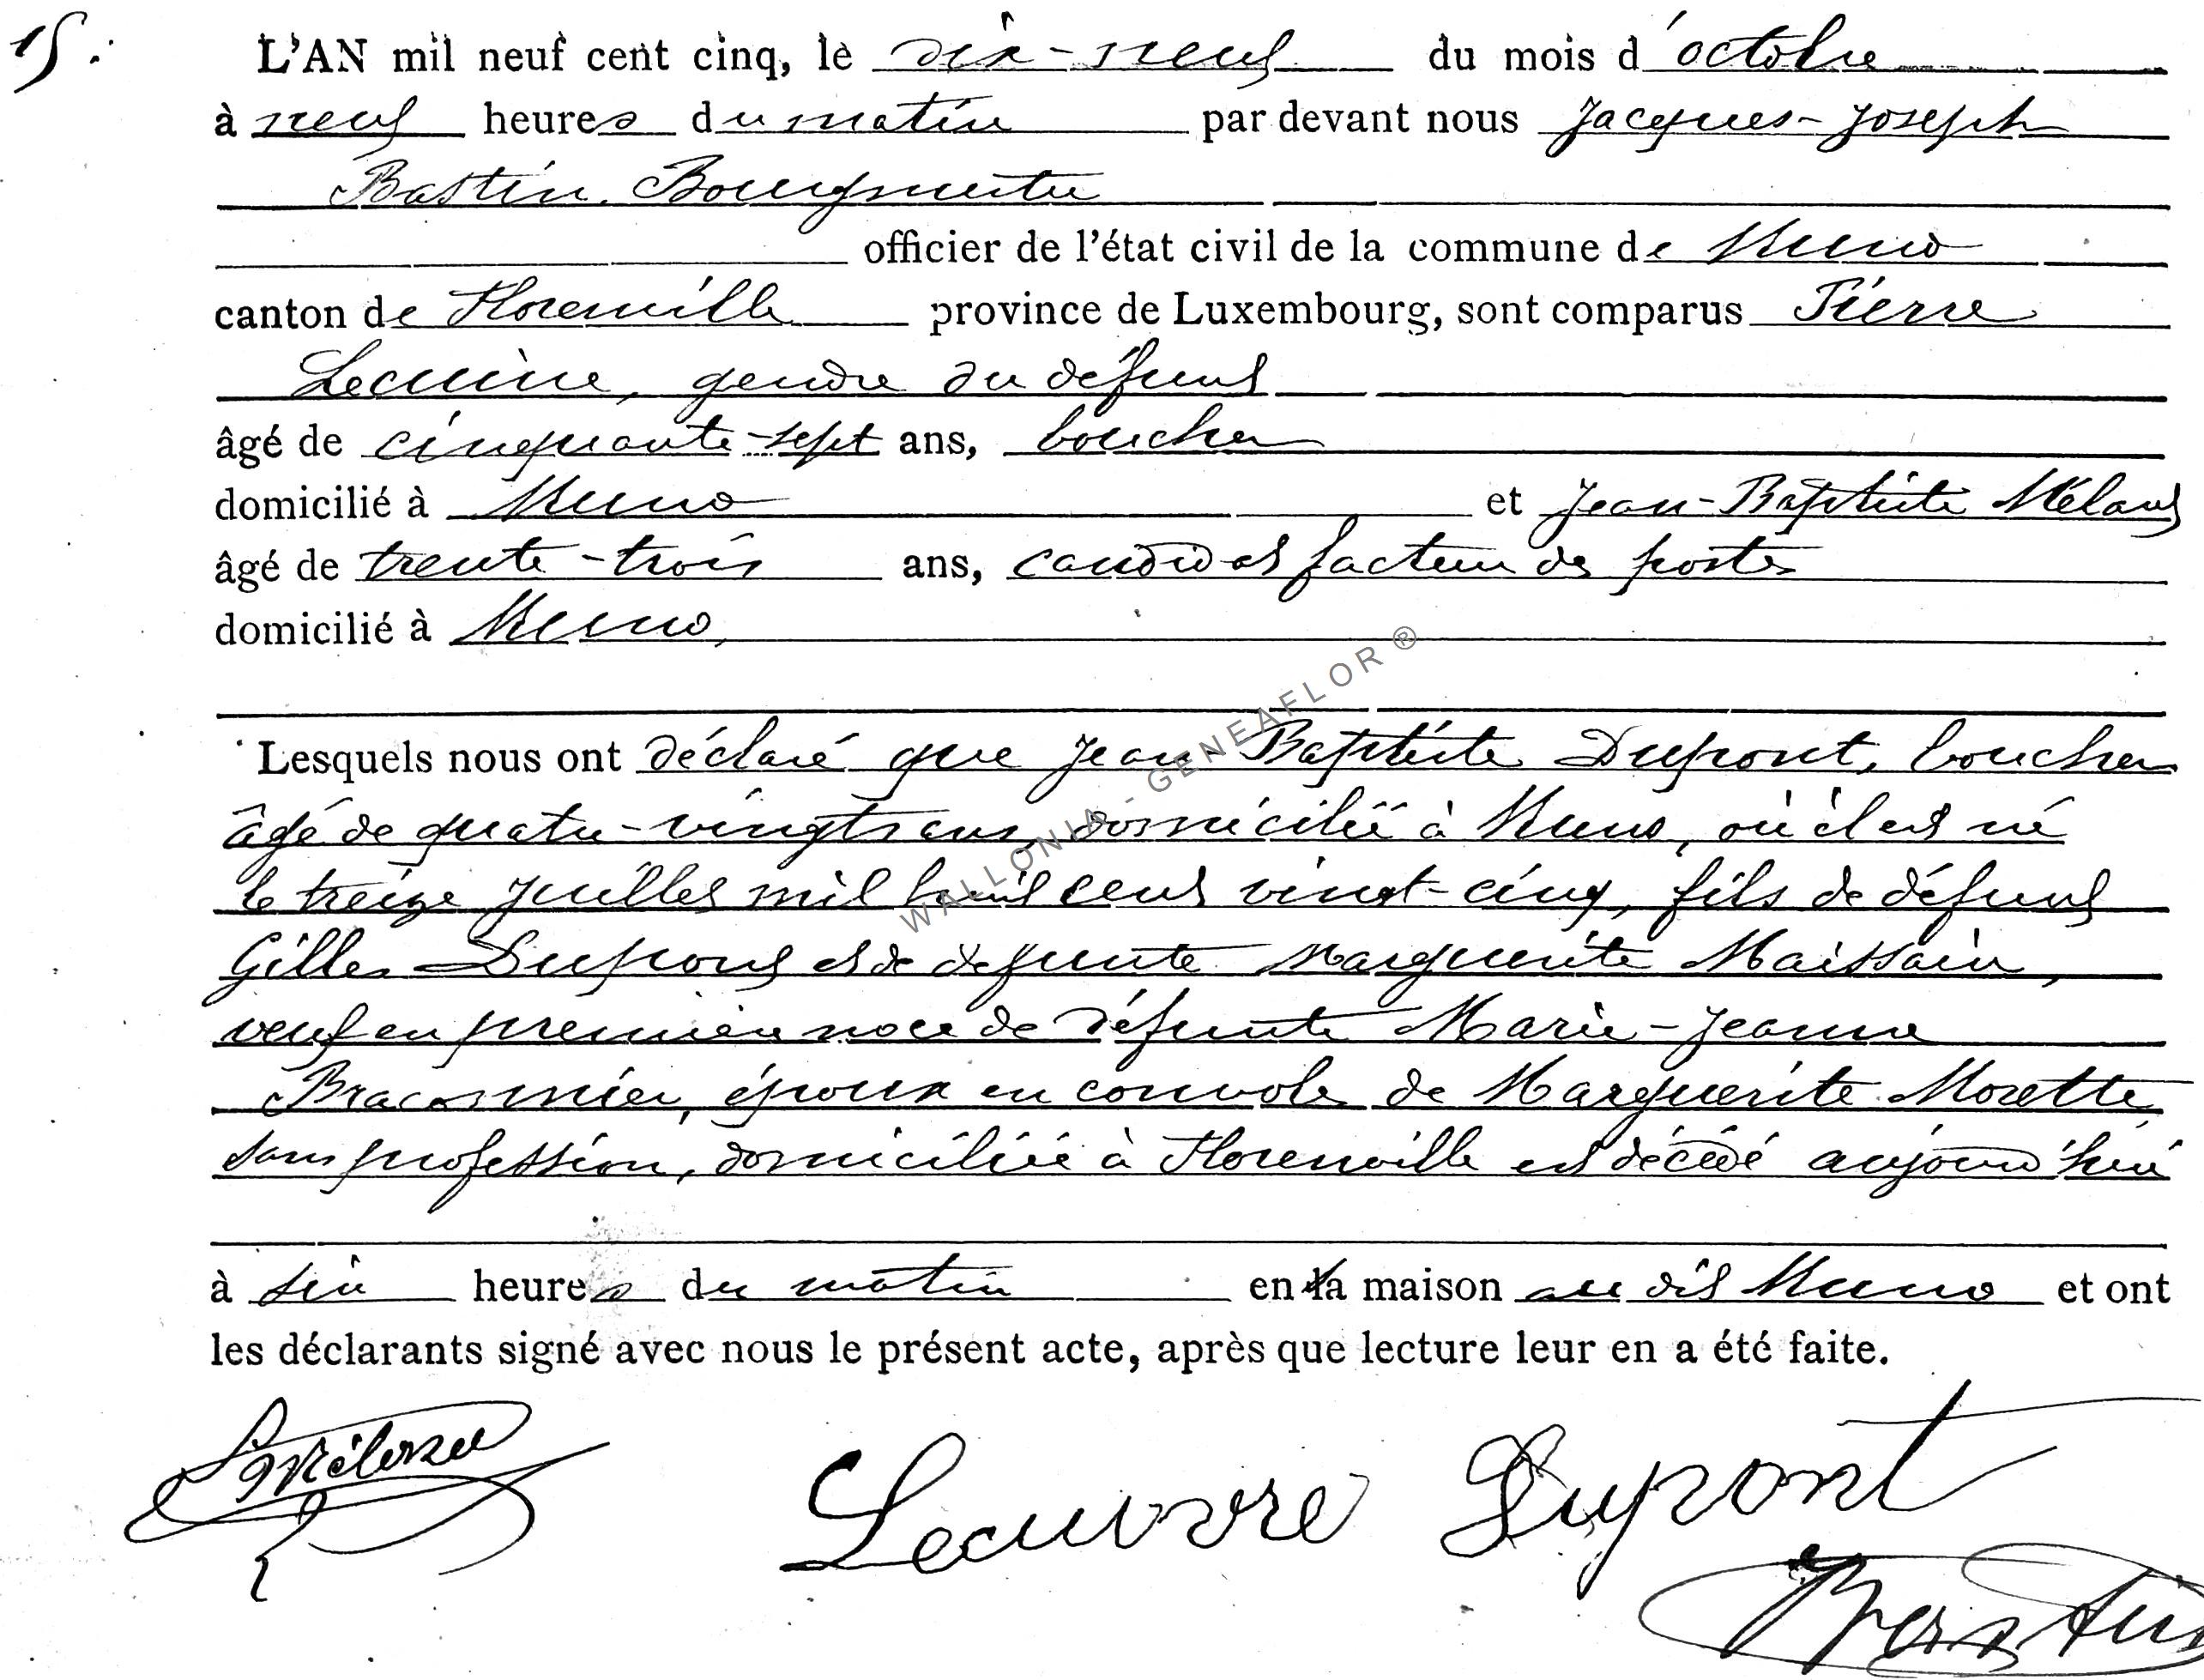 15.
L'AN mil neuf cent cinq, le dix-neuf du mois d'octobre
à neuf heures du matin par devant nous Jacques-Joseph
Bastin, Bourgmestre
officier de l'état civil de la commune de Muno
canton de Florenville province de Luxembourg, sont comparus Pierre
gendre du défunt
âgé de cinquante-sept ans, boucher
domicilié à Muno et Jean-Baptiste
âgé de trente-trois ans, candidat facteur des postes
domicilié à Muno,
Lesquels nous ont déclaré que Jean-Baptiste Dupont, boucher
âgé de quatre-vingts ans, domicilié à Muno, où il est né
le treize juillet mil huit cent vingt-cinq, fils de défunt
Gilles Dupont et de défunte Marguerite Maissain,
veuf en première noce de défunte Marie-Jeanne
Braconnier, époux en convole de Marguerite Morette
sans profession, domiciliée à Florenville est décédé aujourd'hui
à six heures du matin en sa maison au dit Muno et ont
les déclarants signé avec nous le présent acte, après que lecture leur en a été faite.
Lecuivre Dupont
Bastin
WALLONIA - GENEAFLOR ®